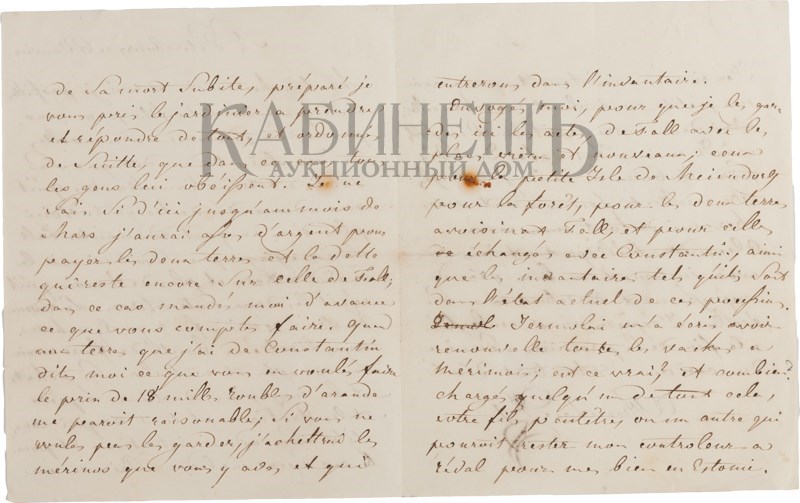 de sa mort subite, préparé je
vous peris le jardinier a prendre
et répondre de tout, et ordonnes
de suitte, que dans ce tous
les gens lui obeissent. Je ne
sais si d'ici jusqu'au mois de
Mars j'aurai assés d'argent pour
payer les deux terres et la dette
qui reste encore sur celle de Fall;
dans ce cas mandés moi d'avance
ce que vous comptes faire. Quand
aux terres que j'ai de Constantin
dites moi ce que vous en voulés faire
le prix de 18 mille roubles d'arande
me paroit raisonable; si vous ne
voules pas les garder, j'achettrai les
mérinos que vous y avés et qui
entrerons dans l'inventaire.
Envoyés moi, pour que je les gar-
des ici les actes de Fall avec les
plans vieux et nouveaux; comme
pour la petite Isle de Meiendorff
pour la forêt, pour les deux terres
avoisinant Fall, et pour celles
échangés avec Constantin, ainsi
que les inventaires tels quils sont
dans l'état actuel de ces possessions.
Jermolai m'a écris avoir
renouvelle toutes les vaches en
mérinos; est ce vrai? et combien?
chargés quelqu'un de tout cela,
votre fils peutetre, ou un autre qui
pourroit rester mon controleur a
réval pour mes bien en Estonie.
КАБИНЕТЪ
АУКЦИОННЫЙ ДОМ